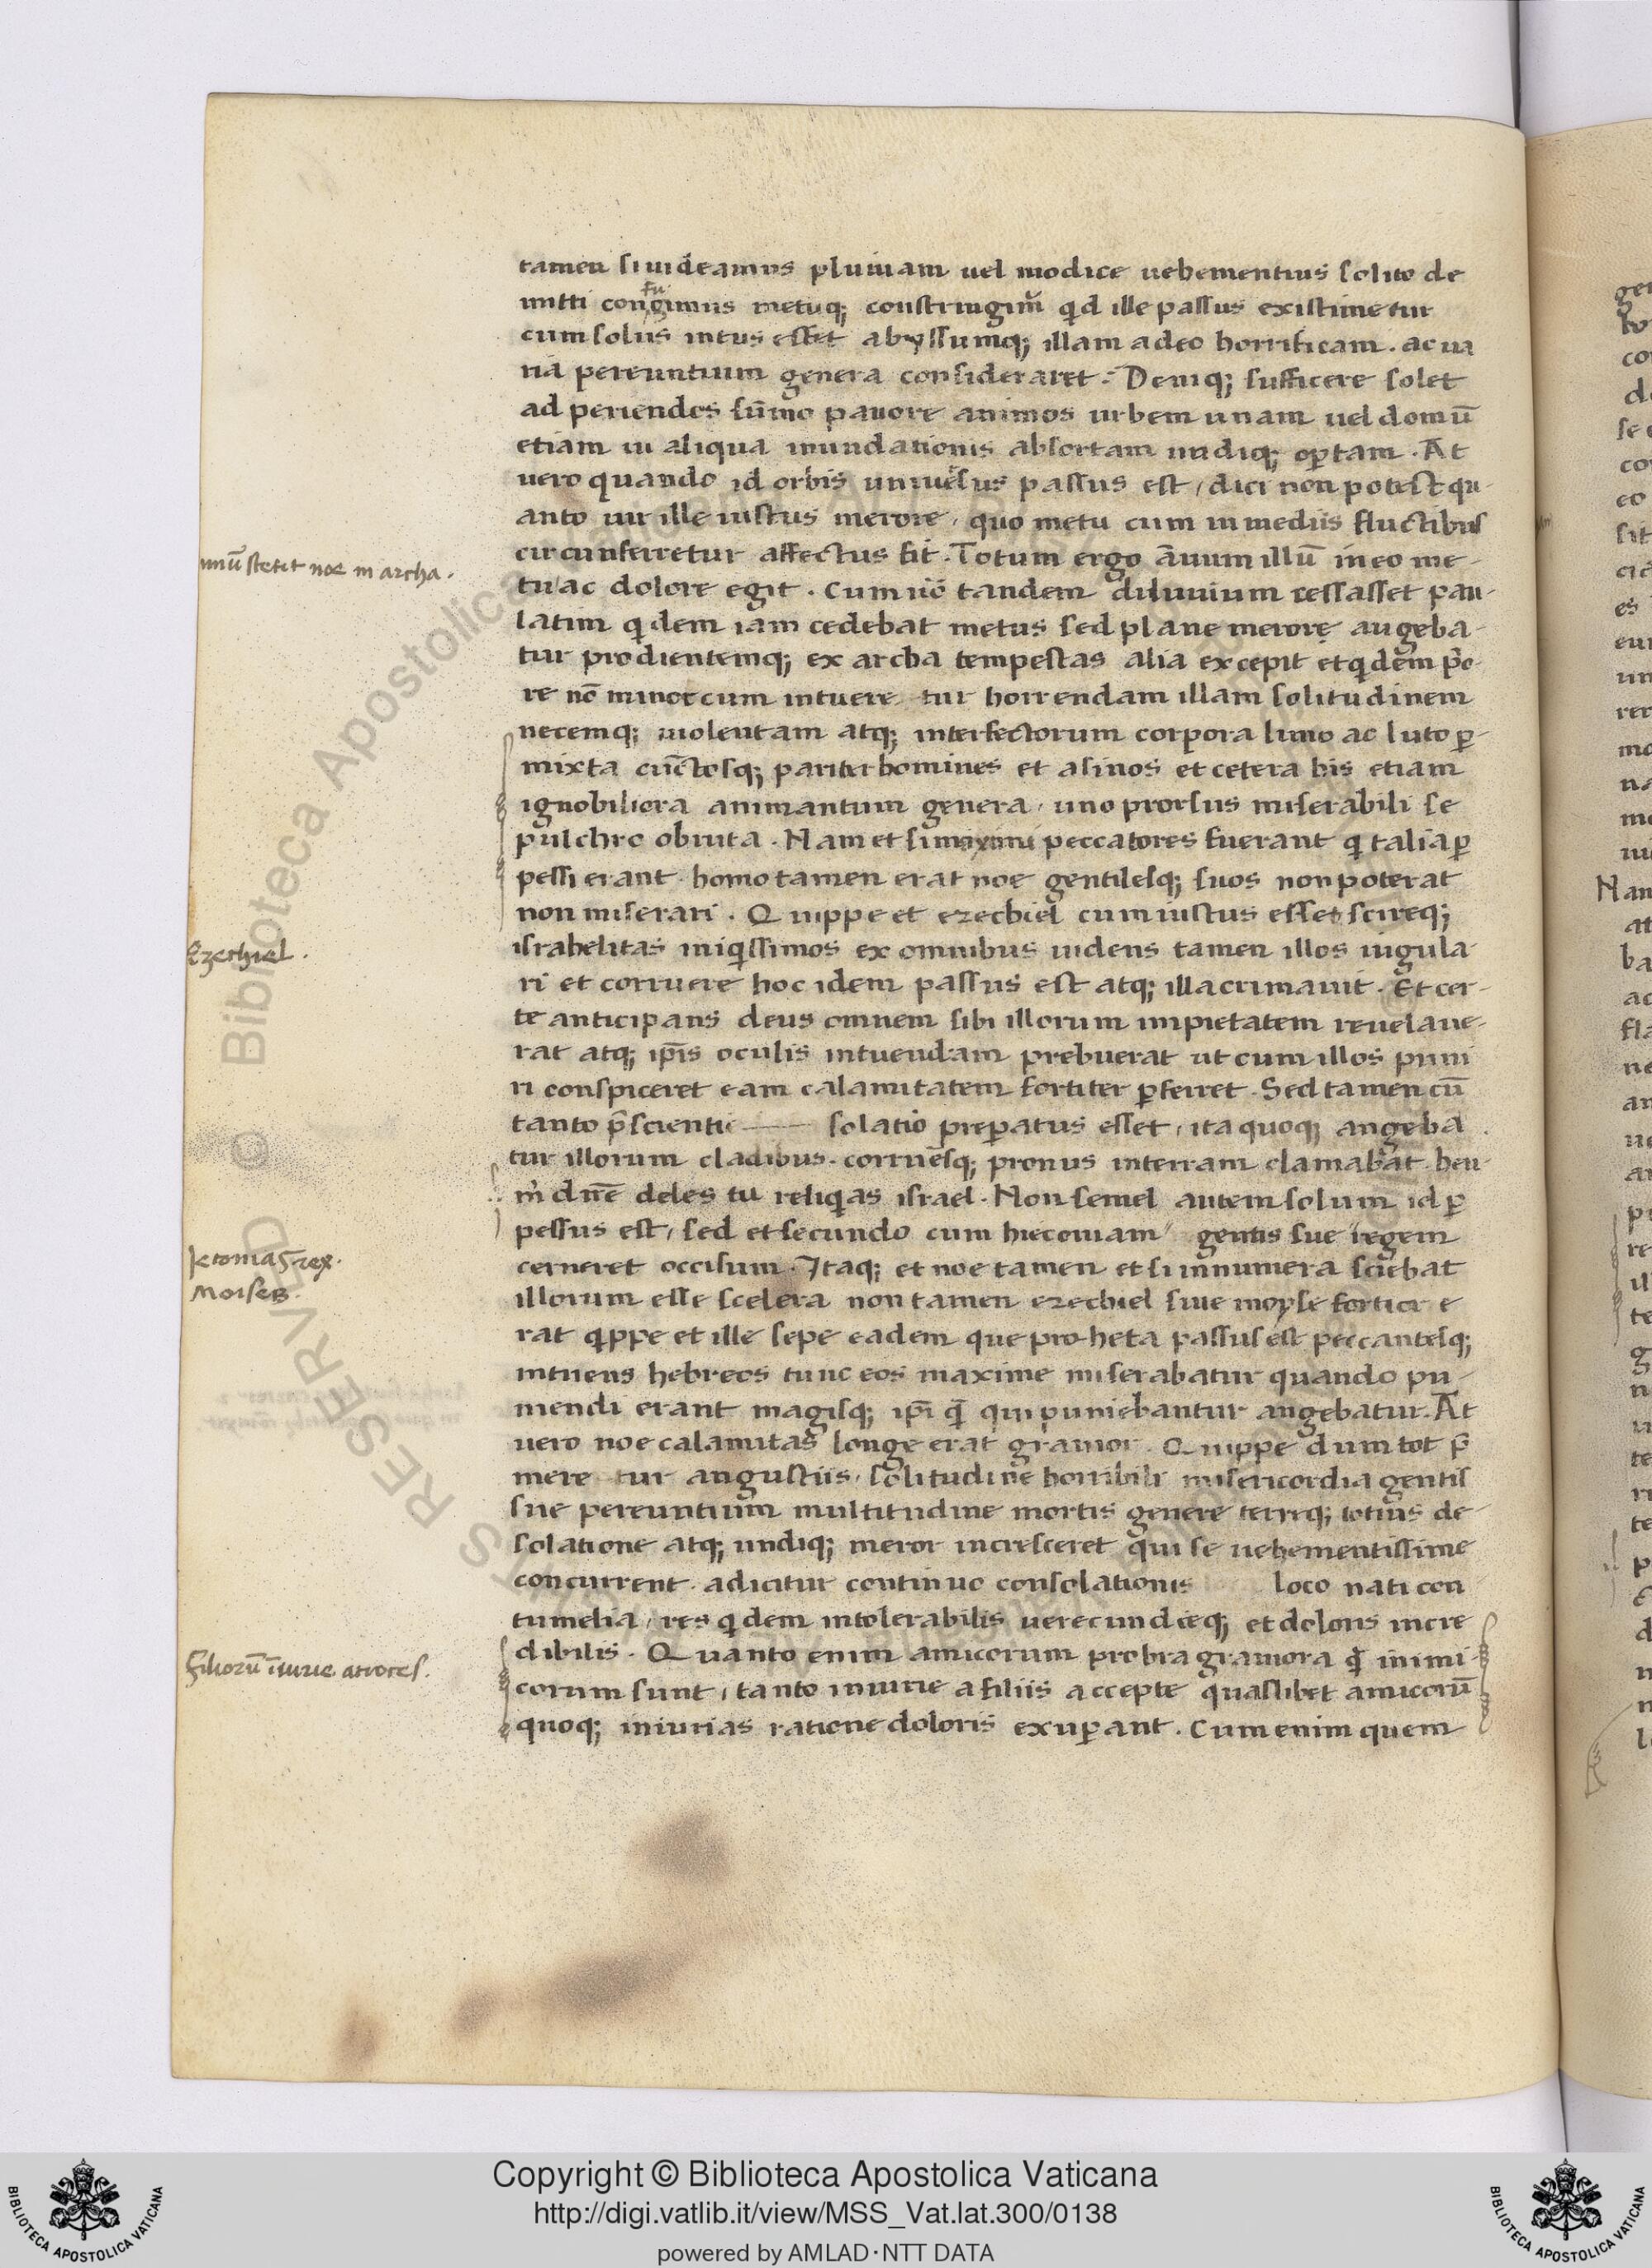 tamen si uideamus pluuiam uel modice uehementius solito de
mitti confugimus metuq; constringim᷒ qd ille passus existimetur
cum solus intus esset abyssumq; illam adeo horrificam. ac ua
ria pereuntium genera consideraret. Deniq; sufficere solet
ad periendos sūmo pauore animos urbem unam uel domū
etiam in aliqua inundationis absortam undiq; optam. At
uero quando id orbis uniuersus passus est, dici non potest qu-
anto uir ille iustus merore, quo metu cum in mediis fluctibus
circunferretur affectus sit. Totum ergo ānum illū in eo me-
unū stetit noe in archa.
tu ac dolore egit. Cum uō tandem diluuium cessasset pau-
latim qdem iam cedebat metus sed plane merore augeba-
tur prodientemq; ex archa tempestas alia excepit et qdem po-
re nō minor cum intuere tur horrendam illam solitudinem
necemq; uiolentam atq; interfectorum corpora limo ac luto p-
mixta cūctosq; pariter homines et asinos et cetera his etiam
ignobiliora animantum genera, uno prorsus miserabili se
pulchro obruta. Nam et si maximi peccatores fuerant q talia p
pessi erant. homo tamen erat noe gentilesq; suos non poterat
non miserari. Quippe et ezechiel cum iustus esset scireq;
Ezechiel.
israhelitas iniqssimos ex omnibus uidens tamen illos iugula
ri et corruere hoc idem passus est atq; illacrimauit. Et cer-
te anticipans deus omnem sibi illorum impietatem reuelaue-
rat atq; ipsis oculis intuendam prebuerat ut cum illos puni
ri conspiceret eam calamitatem fortiter pferret. Sed tamen cū
tanto pscientie solatio prepatus esset, ita quoq; angeba
tur illorum cladibus. corruesq; pronus in terram clamabat. heu
m dne deles tu reliqas israel. Non semel autem solum id p
pessus est, sed et secundo cum hieconiam gentis sue regem
Ieconias rex.
cerneret occisum. Itaq; et noe tamen et si innumera sciebat
Moises.
illorum esse scelera non tamen ezechiel siue moyse fortior e
rat qppe et ille sepe eadem que propheta passus est peccantesq;
intuens hebreos tunc eos maxime miserabatur quando pu-
niendi erant magisq; ipi q qui puniebantur angebatur. At
uero noe calamitas longe erat grauior. Quippe dum tot p
mere tur angustiis, solitudine horribili misericordia gentis
sue pereuntium multitudine mortis genere terreq; totius de-
solatione atq; undiq; meror incresceret qui se uehementissime
concurrent. adicitur continuo consolationis loco nati con
tumelia, res qdem intolerabilis uerecundieq; et doloris incre
dibilis. Quanto enim amicorum probra grauiora q inimi-
Filiorū iniurie atroces.
corum sunt, tanto iniurie a filiis accepte quaslibet amicorū
quoq; iniurias ratione doloris exupant. Cum enim quem
Copyright © Biblioteca Apostolica Vaticana
http://digi.vatlib.it/view/MSS_Vat.lat.300/0138
powered by AMLAD·NTT DATA
BIBLIOTECA APOSTOLICA VATICANA
BIBLIOTECA APOSTOLICA VATICANA